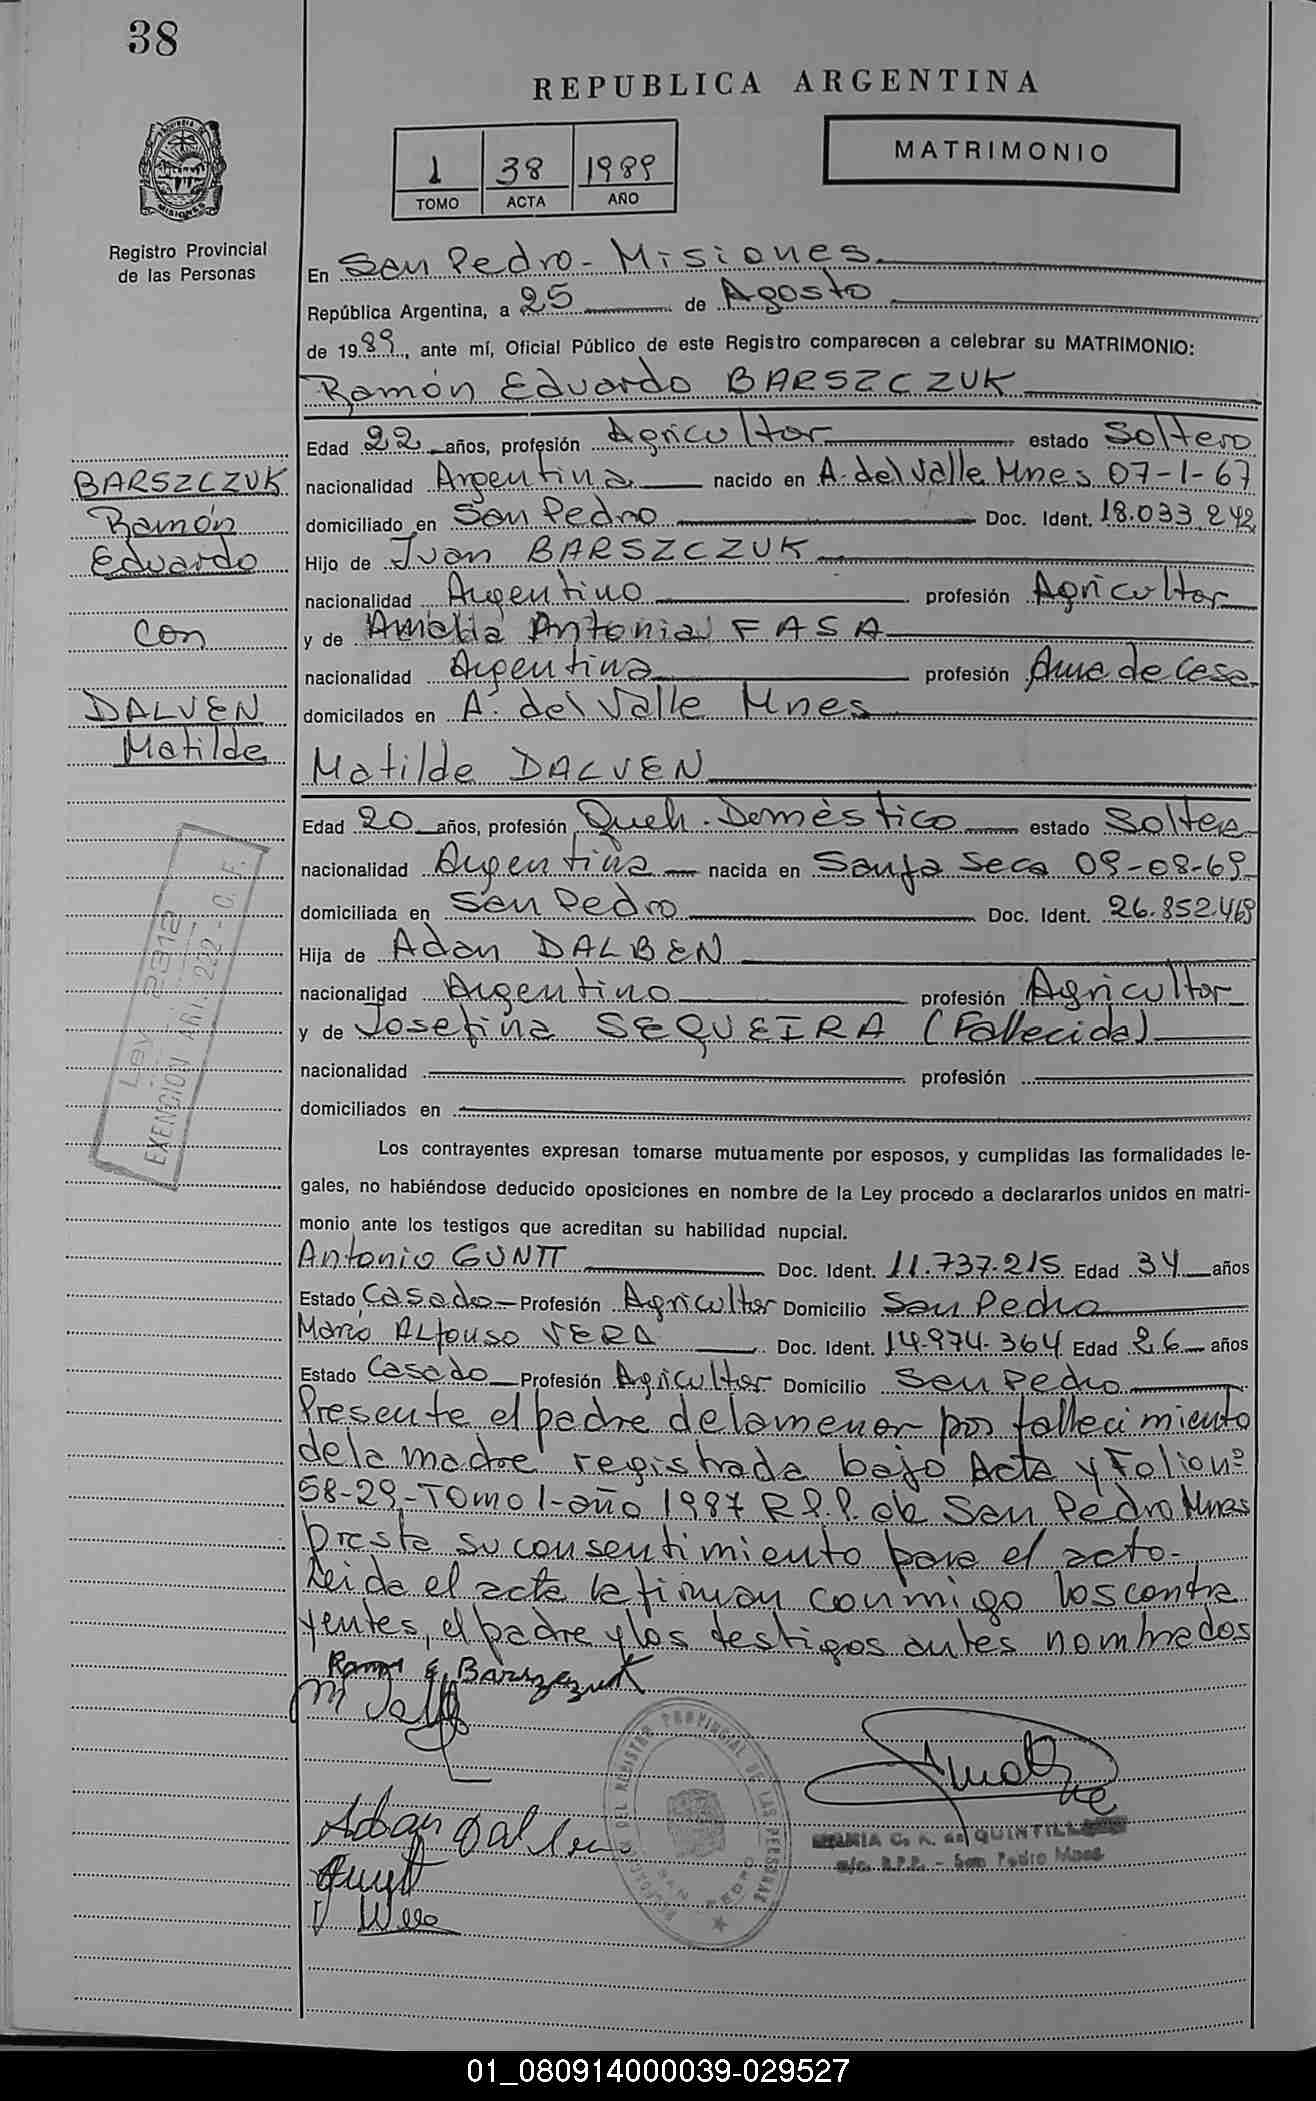 38
REPUBLICA ARGENTINA
1 38 1989
TOMO ACTA AÑO
MATRIMONIO
MISIONES
Registro Provincial
de las Personas
En San Pedro - Misiones
República Argentina, a 25 de Agosto
de 1989, ante mí, Oficial Público de este Registro comparecen a celebrar su MATRIMONIO:
Ramón Eduardo BARSZCZUK
Edad 22 años, profesión Agricultor estado Soltero
nacionalidad Argentina nacido en A. del Valle Mnes 07-1-67
domiciliado en San Pedro Doc. Ident. 18.033.242
Hijo de Juan BARSZCZUK
nacionalidad Argentino profesión Agricultor
y de Amalia Antonia FASA
nacionalidad Argentina profesión Ama de Casa
domicilados en A. del Valle Mnes
BARSZCZUK
Ramón
Eduardo
Con
DALVEN
Matilde
Matilde DALVEN
Edad 20 años, profesión Queh. Doméstico estado Soltera
nacionalidad Argentina nacida en Sanja Seca 09-08-69
domiciliada en San Pedro Doc. Ident. 26.852.469
Hija de Adan DALBEN
nacionalidad Argentino profesión Agricultor
y de Josefina SEQUEIRA (Fallecida)
nacionalidad profesión
domiciliados en
Ley 2312
EXENCION Art. 222 - C. F.
Los contrayentes expresan tomarse mutuamente por esposos, y cumplidas las formalidades le-
gales, no habiéndose deducido oposiciones en nombre de la Ley procedo a declararlos unidos en matri-
monio ante los testigos que acreditan su habilidad nupcial.
Antonio GUNTT Doc. Ident. 11.737.215 Edad 34 años
Estado Casado Profesión Agricultor Domicilio San Pedro
Mario Alfonso VERA Doc. Ident. 14.974.364 Edad 26 años
Estado Casado Profesión Agricultor Domicilio San Pedro
Presente el padre de la menor por fallecimiento
de la madre registrada bajo Acta y Folio nº
58-29-Tomo 1-año 1987 R.P.P. de San Pedro Mnes
presta su consentimiento para el acto-
Leida el acta la firman conmigo los contra
yentes, el padre y los testigos antes nombrados
Ramon E. Barszczuk
REGISTRO PROVINCIAL DE LAS PERSONAS
SAN PEDRO
MARIA C. K. de QUINTILL
R.P.P. - San Pedro Mnes.
01_080914000039-029527